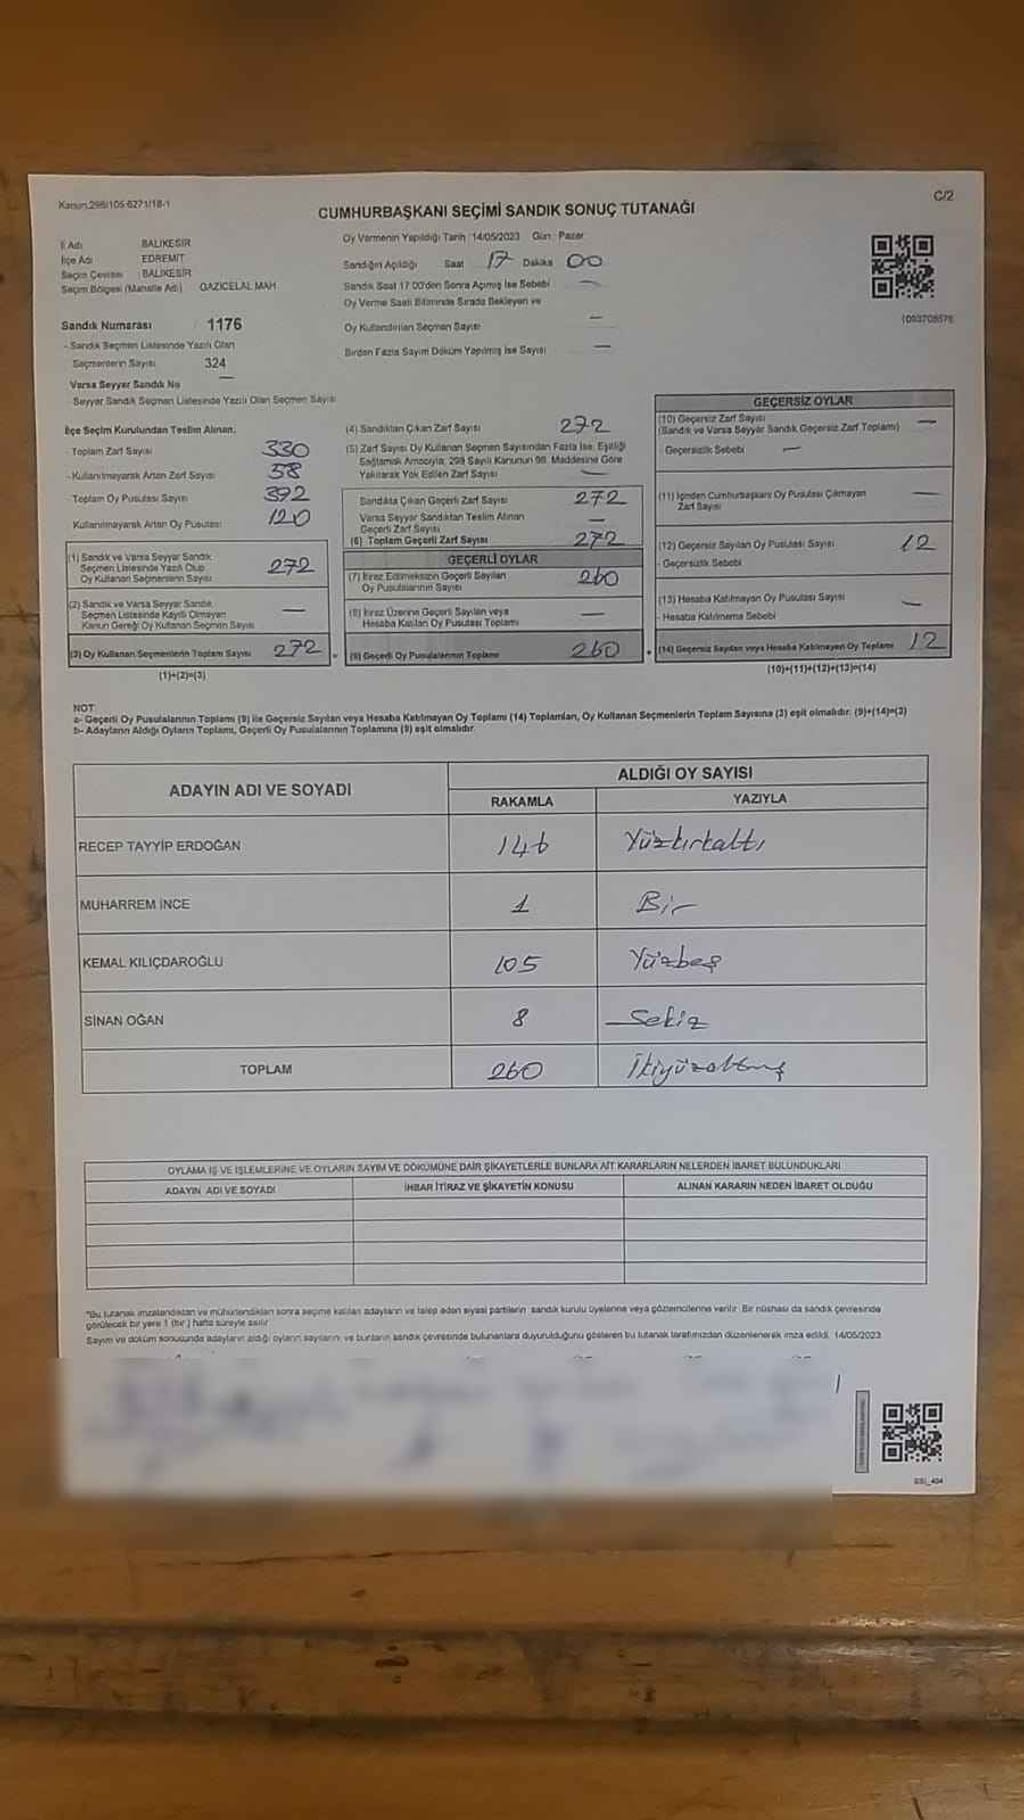 Kanun:298/105 6271/18-1
C/2
CUMHURBAŞKANI SEÇİMİ SANDIK SONUÇ TUTANAĞI
İl Adı BALIKESİR
İlçe Adı EDREMİT
Seçim Çevresi : BALIKESİR
Seçim Bölgesi (Mahalle Adı) GAZİCELAL MAH.
Sandık Numarası : 1176
- Sandık Seçmen Listesinde Yazılı Olan
Seçmenlerin Sayısı 324
Varsa Seyyar Sandık No —
Seyyar Sandık Seçmen Listesinde Yazılı Olan Seçmen Sayısı
Oy Vermenin Yapıldığı Tarih : 14/05/2023 Gün : Pazar
Sandığın Açıldığı Saat 17 Dakika 00
Sandık Saat 17:00'den Sonra Açılmış İse Sebebi —
Oy Verme Saati Bitiminde Sırada Bekleyen ve
Oy Kullandırılan Seçmen Sayısı —
Birden Fazla Sayım Döküm Yapılmış İse Sayısı —
İlçe Seçim Kurulundan Teslim Alınan;
Toplam Zarf Sayısı 330
- Kullanılmayarak Artan Zarf Sayısı 58
Toplam Oy Pusulası Sayısı 392
Kullanılmayarak Artan Oy Pusulası 120
(1) Sandık ve Varsa Seyyar Sandık
Seçmen Listesinde Yazılı Olup
Oy Kullanan Seçmenlerin Sayısı 272
(2) Sandık ve Varsa Seyyar Sandık
Seçmen Listesinde Kayıtlı Olmayan
Kanun Gereği Oy Kullanan Seçmen Sayısı —
(3) Oy Kullanan Seçmenlerin Toplam Sayısı 272
(1)+(2)=(3)
(4) Sandıktan Çıkan Zarf Sayısı 272
(5) Zarf Sayısı Oy Kullanan Seçmen Sayısından Fazla İse, Eşitliği
Sağlamak Amacıyla, 298 Sayılı Kanunun 98. Maddesine Göre
Yakılarak Yok Edilen Zarf Sayısı —
Sandıkta Çıkan Geçerli Zarf Sayısı 272
Varsa Seyyar Sandıktan Teslim Alınan
Geçerli Zarf Sayısı —
(6) Toplam Geçerli Zarf Sayısı 272
GEÇERLİ OYLAR
(7) İtiraz Edilmeksizin Geçerli Sayılan
Oy Pusulalarının Sayısı 260
(8) İtiraz Üzerine Geçerli Sayılan veya
Hesaba Katılan Oy Pusulası Toplamı —
(9) Geçerli Oy Pusulalarının Toplamı 260
GEÇERSİZ OYLAR
(10) Geçersiz Zarf Sayısı
(Sandık ve Varsa Seyyar Sandık Geçersiz Zarf Toplamı) —
Geçersizlik Sebebi —
(11) İçinden Cumhurbaşkanı Oy Pusulası Çıkmayan
Zarf Sayısı —
(12) Geçersiz Sayılan Oy Pusulası Sayısı 12
- Geçersizlik Sebebi
(13) Hesaba Katılmayan Oy Pusulası Sayısı —
- Hesaba Katılmama Sebebi
(14) Geçersiz Sayılan veya Hesaba Katılmayan Oy Toplamı 12
(10)+(11)+(12)+(13)=(14)
NOT:
a- Geçerli Oy Pusulalarının Toplamı (9) ile Geçersiz Sayılan veya Hesaba Katılmayan Oy Toplamı (14) Toplamları, Oy Kullanan Seçmenlerin Toplam Sayısına (3) eşit olmalıdır. (9)+(14)=(3)
b- Adayların Aldığı Oyların Toplamı, Geçerli Oy Pusulalarının Toplamına (9) eşit olmalıdır.
ADAYIN ADI VE SOYADI
ALDIĞI OY SAYISI
RAKAMLA YAZIYLA
RECEP TAYYİP ERDOĞAN 146 Yüzkırkaltı
MUHARREM İNCE 1 Bir
KEMAL KILIÇDAROĞLU 105 Yüzbeş
SİNAN OĞAN 8 Sekiz
TOPLAM 260 İkiyüzaltmış
OYLAMA İŞ VE İŞLEMLERİNE VE OYLARIN SAYIM VE DÖKÜMÜNE DAİR ŞİKAYETLERLE BUNLARA AİT KARARLARIN NELERDEN İBARET BULUNDUKLARI
ADAYIN ADI VE SOYADI İHBAR İTİRAZ VE ŞİKAYETİN KONUSU ALINAN KARARIN NEDEN İBARET OLDUĞU
*Bu tutanak imzalandıktan ve mühürlendikten sonra seçime katılan adayların ve talep eden siyasi partilerin sandık kurulu üyelerine veya gözlemcilerine verilir. Bir nüshası da sandık çevresinde
görülecek bir yere 1 (bir) hafta süreyle asılır.
Sayım ve döküm sonucunda adayların aldığı oyların sayılarını ve bunların sandık çevresinde bulunanlara duyurulduğunu gösteren bu tutanak tarafımızdan düzenlenerek imza edildi. 14/05/2023